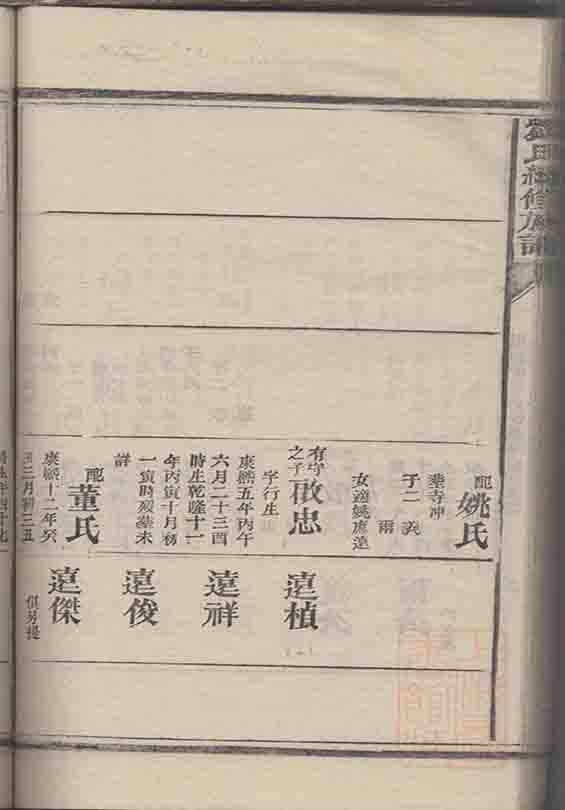 氏經修族譜
配姚氏
葬寺冲
子二
爾
女適姚庶達
有守之子
啟忠
字行生
康熙五年丙午
六月二十三酉
時生乾隆十一
年丙寅十月初
一寅時歿葬未
詳
配董氏
康熙十二年癸
丑三月初三丑
遠楨
遠祥
遠俊
遠傑
俱另提